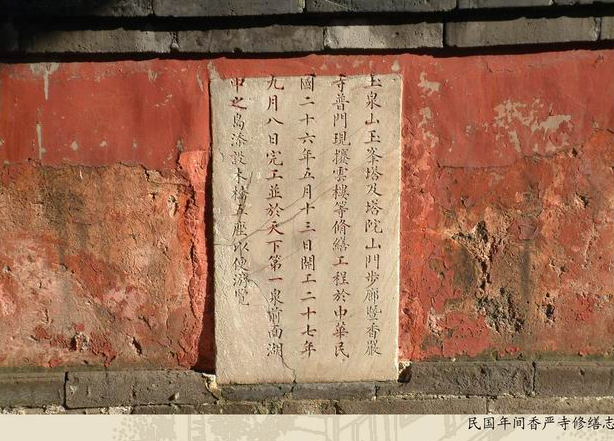 玉泉山玉峯塔及塔院山門步廊暨香嚴
寺普門現攬雲樓等修繕工程於中華民
國二十六年五月十三日開工二十七年
九月八日完工並於天下第一泉前南湖
中之島添設木橋五座以便游覽
民国年间香严寺修缮志